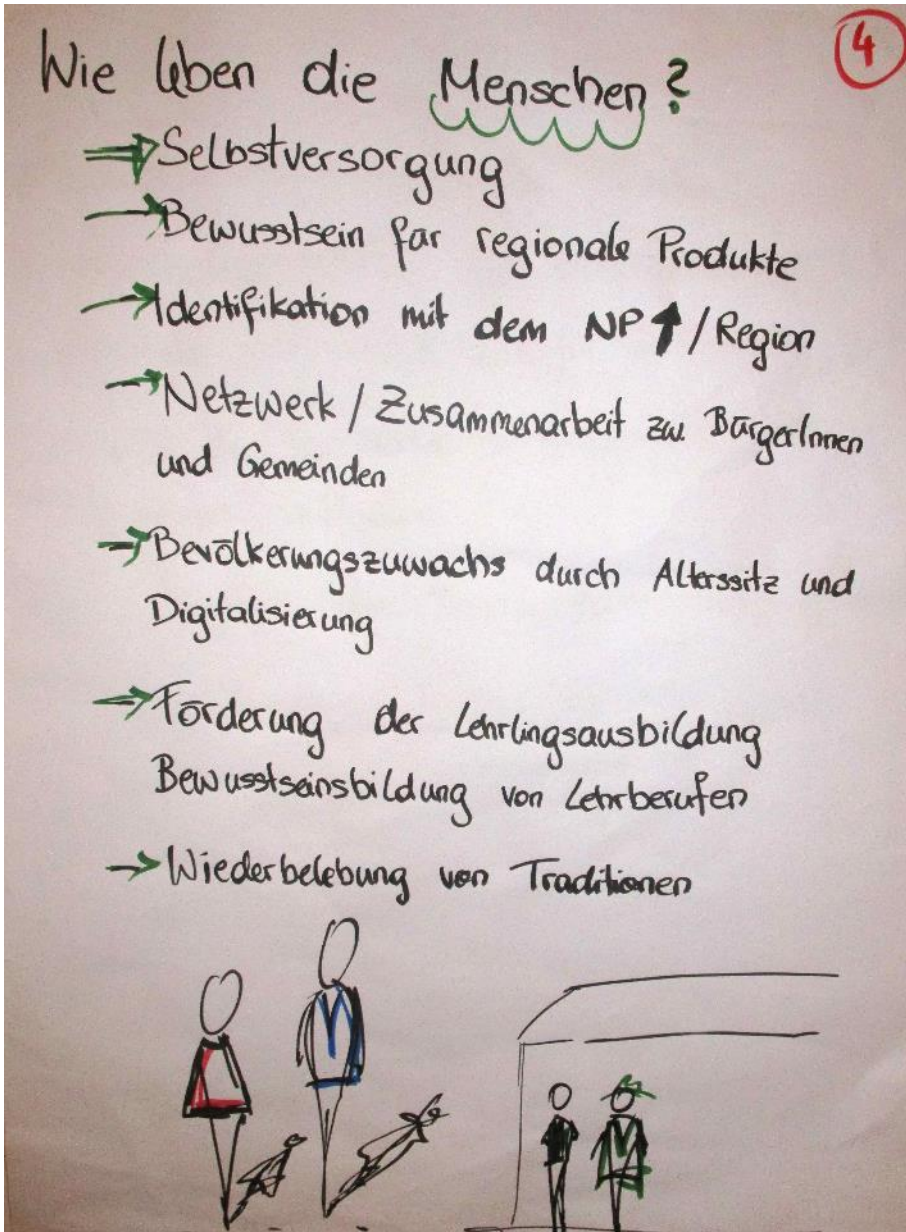 4
Wie leben die Menschen?
⇒ Selbstversorgung
→ Bewusstsein für regionale Produkte
→ Identifikation mit dem NP ↑ / Region
→ Netzwerk / Zusammenarbeit zw. BürgerInnen
und Gemeinden
→ Bevölkerungszuwachs durch Alterssitz und
Digitalisierung
→ Förderung der Lehrlingsausbildung
Bewusstseinsbildung von Lehrberufen
→ Wiederbelebung von Traditionen